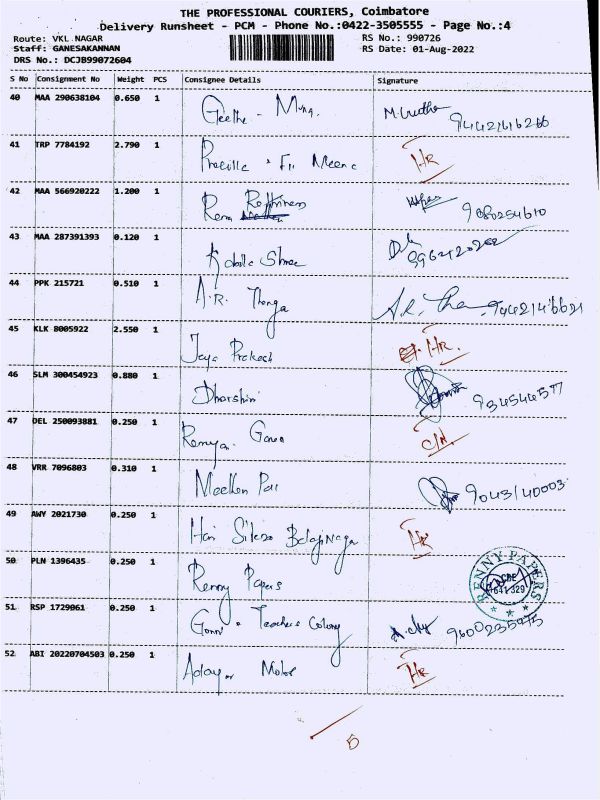 THE PROFESSIONAL COURIERS, Coimbatore
Delivery Runsheet - PCM - Phone No.:0422-3505555 - Page No.:4
Route: VKL NAGAR RS No.: 990726
Staff: GANESAKANNAN RS Date: 01-Aug-2022
DRS No.: DCJB99072604
S No Consignment No Weight PCS Consignee Details Signature
40 MAA 290638104 0.650 1
41 TRP 7784192 2.790 1 HR
42 MAA 566920222 1.200 1
43 MAA 287391393 0.120 1
44 PPK 215721 0.510 1 A.R.
45 KLK 8005922 2.550 1 Jaya Prakash HR.
46 SLM 300454923 0.880 1 Dharshini
47 DEL 250093881 0.250 1 C/N
48 VRR 7096803 0.310 1 9043140003
49 AWY 2021730 0.250 1 HR
50 PLN 1396435 0.250 1 Renny Papers RENNY PAPERS CBE 641 329
51 RSP 1729061 0.250 1 Teachers Colony 9600235975
52 ABI 20220704503 0.250 1 Motor HR
5